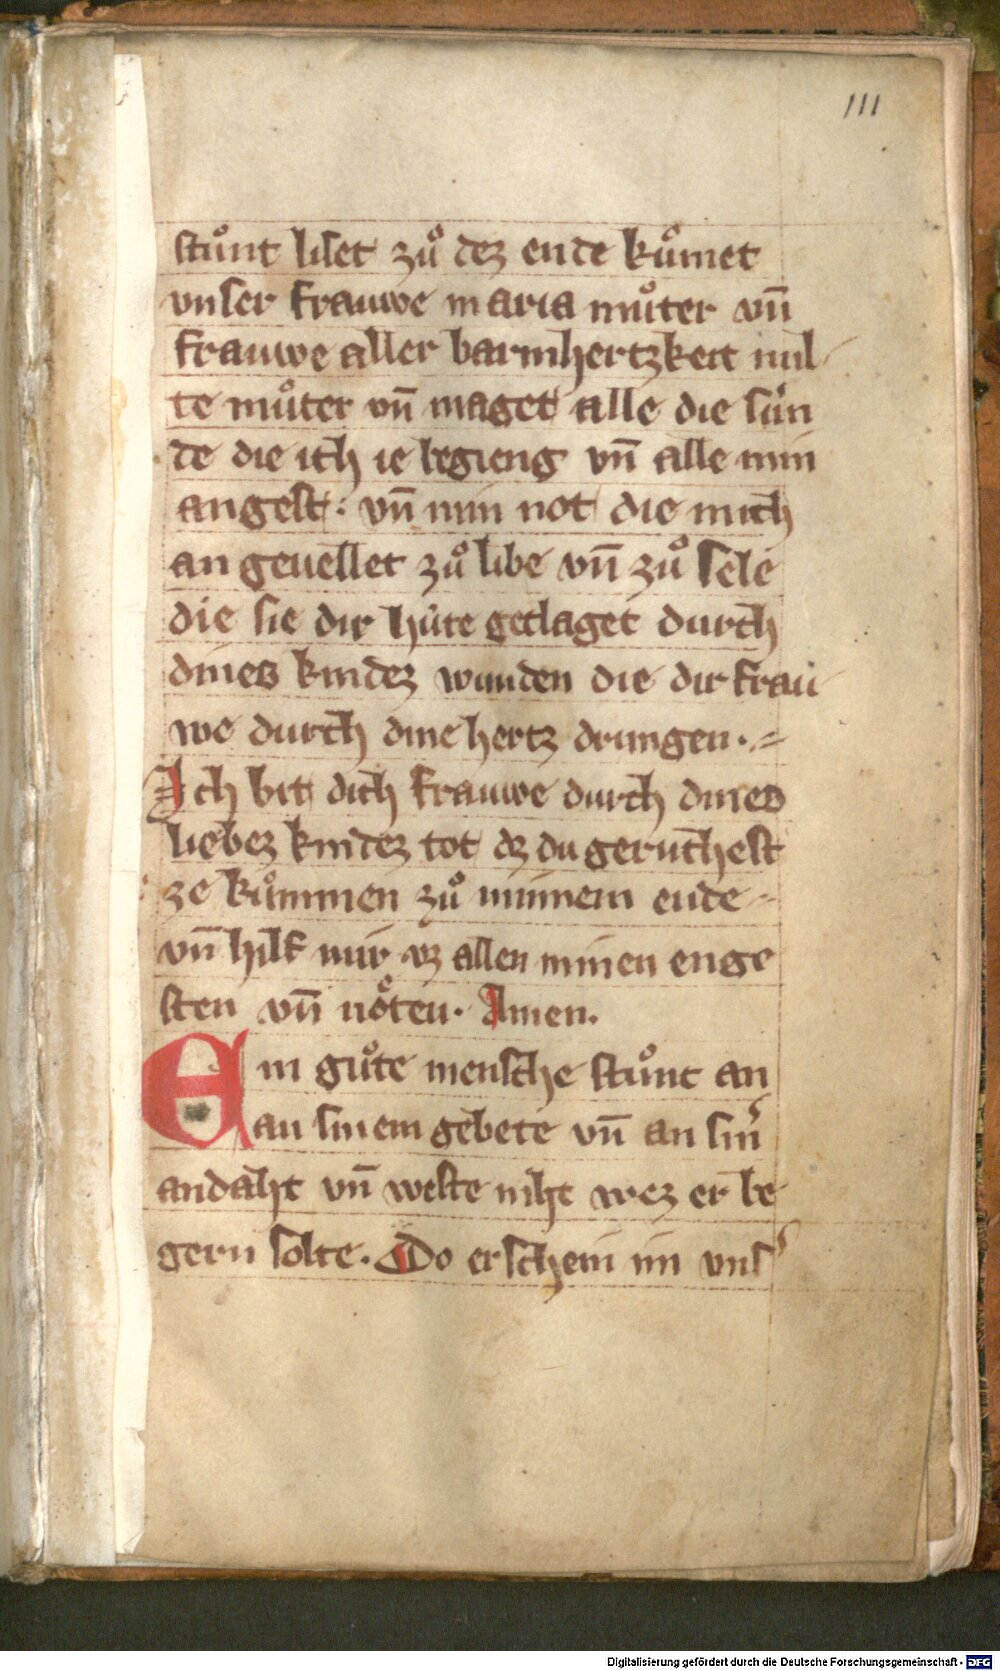 111
stuͦnt liset zuͦ dez ende kuͦmet
vnser frauwe maria muͦter vn̄
frauwe aller barmhertzkeit mil
te muͦter vn̄ maget alle die suͤn
de die ich ie begieng vn̄ alle min
angest: vn̄ min not die mich
an geuellet zuͦ libe vn̄ zuͦ sele
die sie dir huͤte geclaget durch
dines kindez wunden die dir frau
we durch dine hertz drungen. =
Ich bit dich frauwe durch dines
liebez kindez tot dz du geruchest
ze kuͦmmen zuͦ minnem ende -
vn̄ hilf mir vz allen minen enge
sten vn̄ noͤten. Amen.
Ein guͦte mensche stuͦnt an
an sinem gebete vn̄ an sin͛
andaht vn̄ weste niht wez er be
gern solte. Do erschein im vns͛
Digitalisierung gefördert durch die Deutsche Forschungsgemeinschaft - DFG